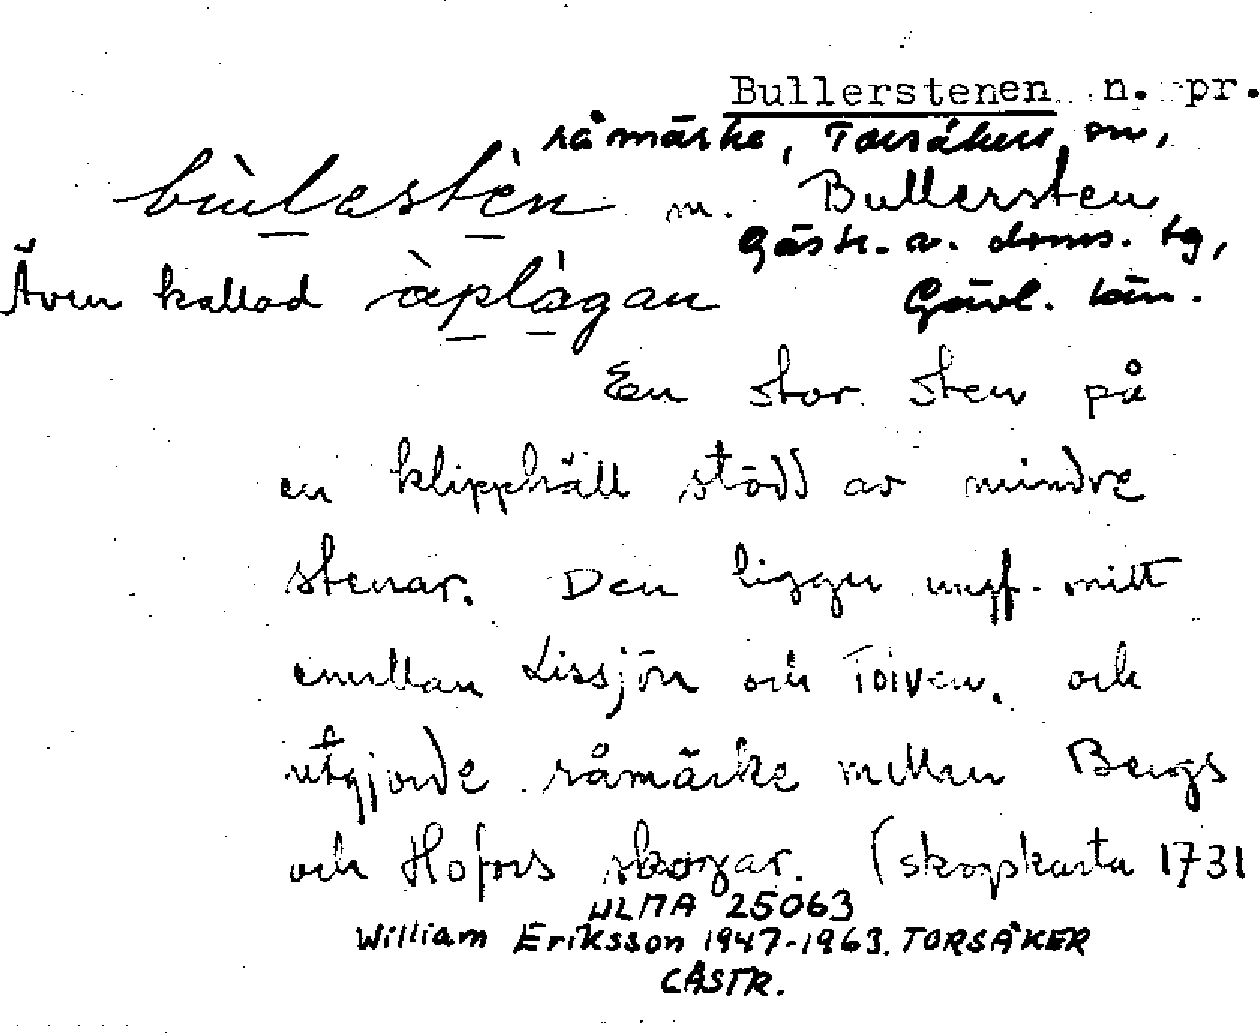 Bullerstenen n. pr.
råmärke, Torsåkers sn,
bùlestèn m. Bullersten
Gästr. ö. doms. tg,
Även kallad àplágan Gävl. län.
En stor sten på
en klipphäll stödd av mindre
stenar. Den ligger ungf. mitt
emellan Lissjön och Toiven. och
utgjorde råmärke mellan Bergs
och Hofors skogar. (skogskarta 1731
ULMA 25063
William Eriksson 1947-1963. TORSÅKER
GÄSTR.